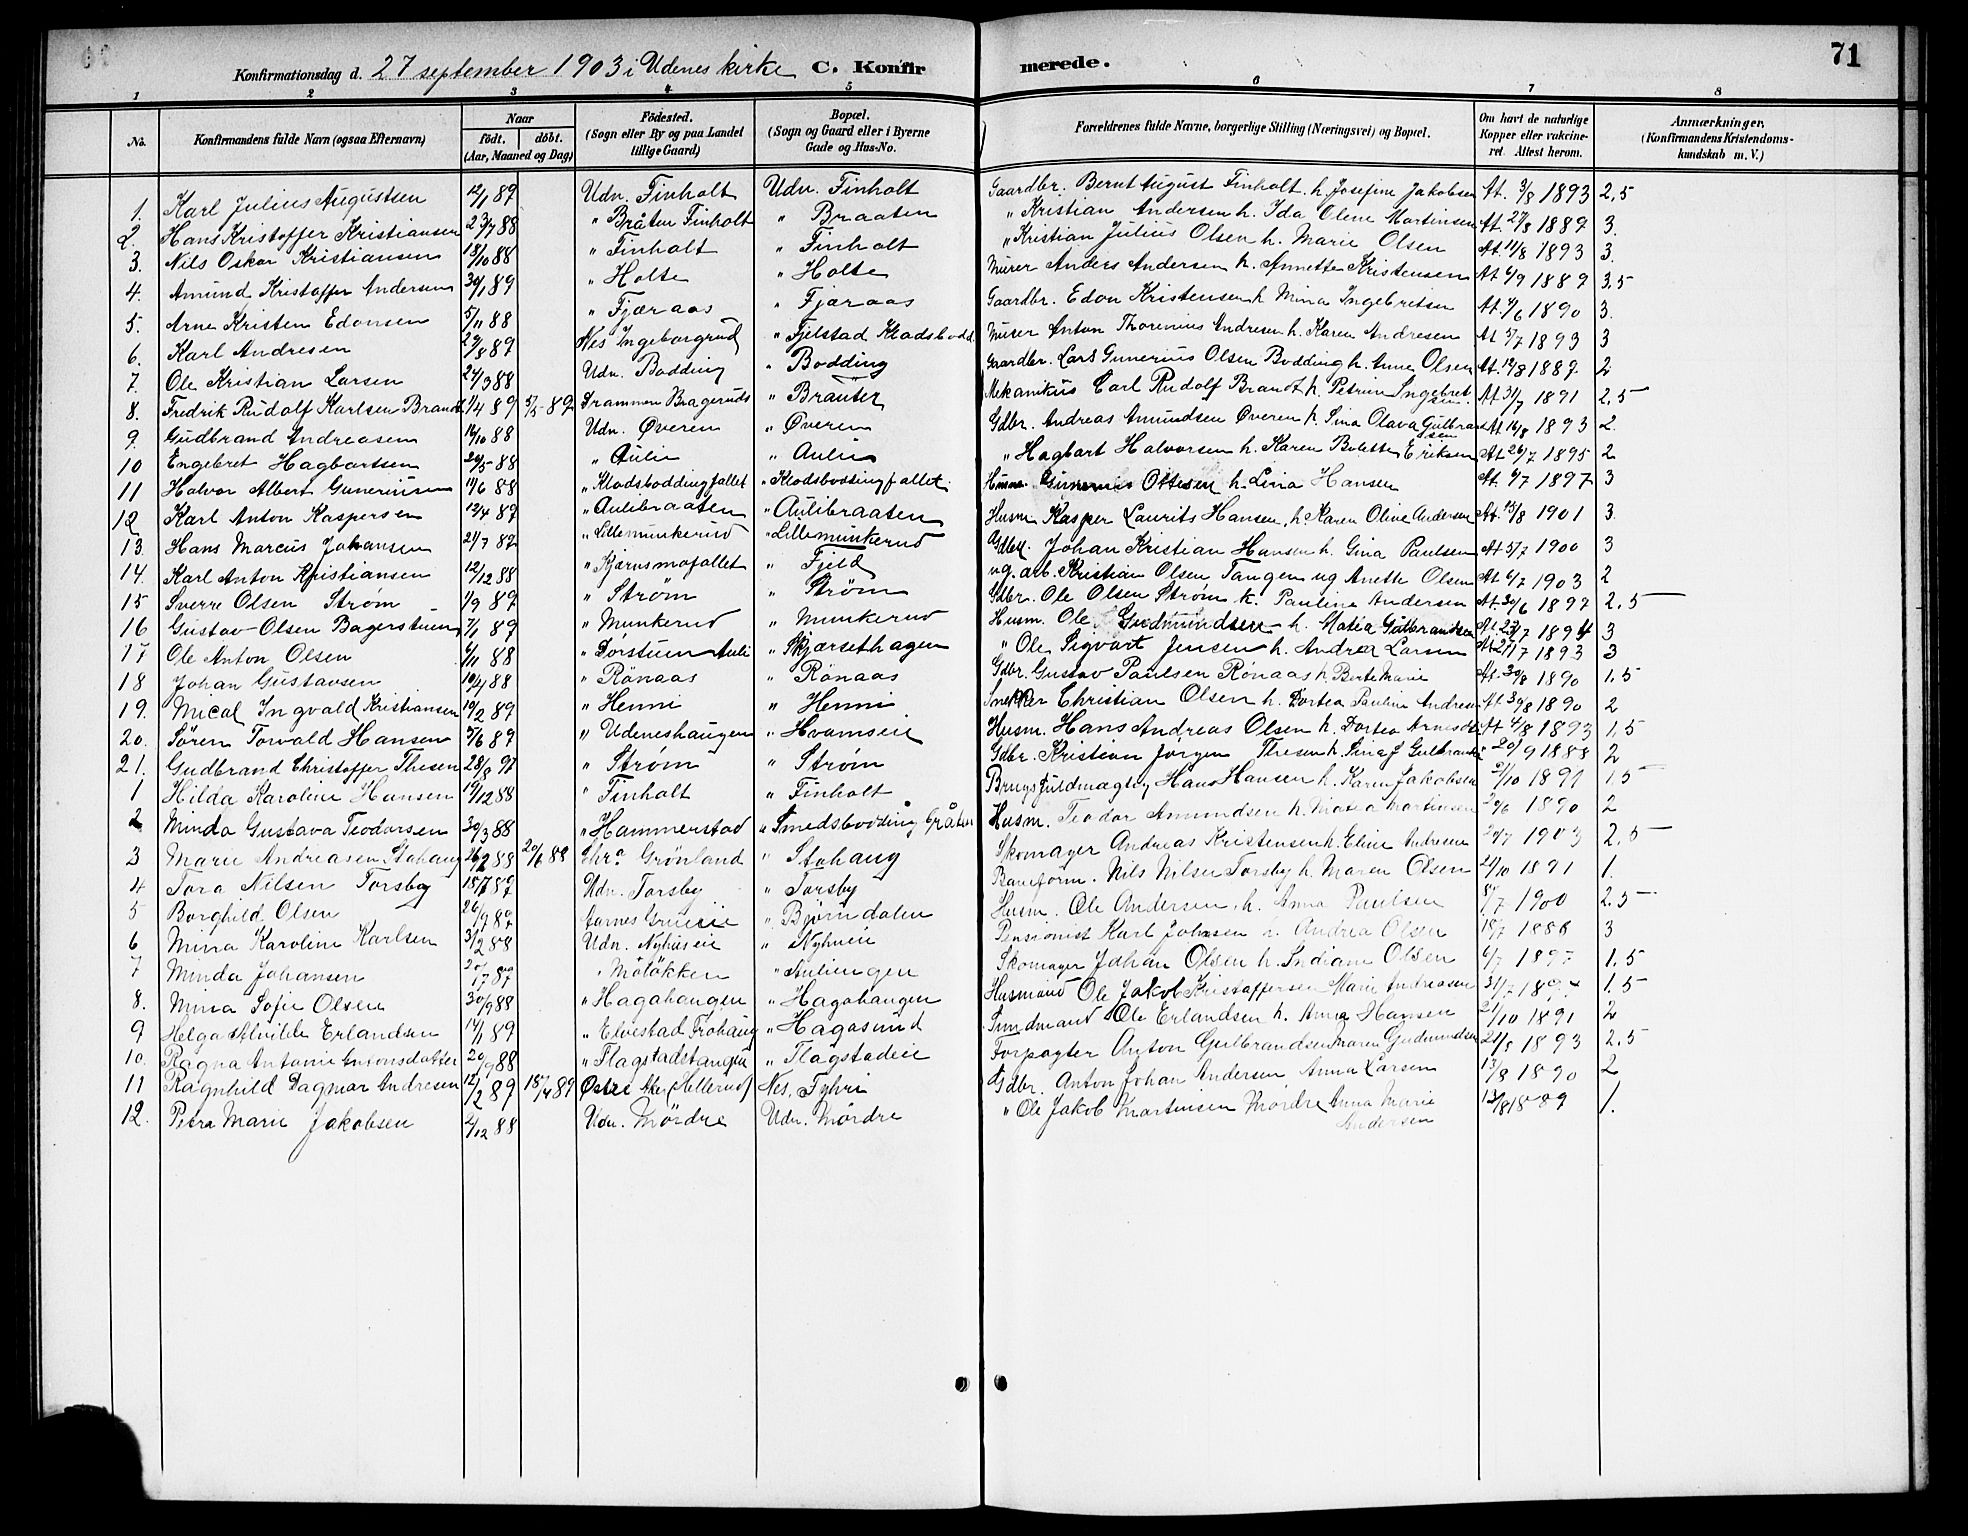 Konfirmationsdag d. 27 september 1903 i Udenes kirke C. Konfirmerede. 71
1 2 3 4 5 6 7 8
No. Konfirmandens fulde Navn (ogsaa Efternavn) Naar födt. döbt. (Aar, Maaned og Dag) Födested. (Sogn eller By og paa Landet tillige Gaard) Bopæl. (Sogn og Gaard eller i Byerne Gade og Hus-No. Forældrenes fulde Navne, borgerlige Stilling (Næringsvei) og Bopæl. Om havt de naturlige Kopper eller vakcineret. Attest herom. Anmærkninger, (Konfirmandens Kristendomskundskab m. V.)
1. Karl Julius Augustsen 12/1 89 Udn. Finholt Udn. Finholt Gaardbr. Bernt August Finholt h. Josefine Jakobsen At. 3/8 1893 2,5
2. Hans Kristoffer Kristiansen 23/7 88 " Bråten Finholt " Braaten " Kristian Andersen h. Ida Oline Martinsen At. 27/8 1889 3.
3. Nils Oskar Kristiansen 18/10 88 " Finholt " Finholt " Kristian Julius Olsen h. Marie Olsen At 11/8 1893 3.
4. Amund Kristoffer Andersen 30/1 89 " Holte " Holte Murer Anders Andersen h. Annette Kristensen At 6/9 1889 3.5
5. Arne Kristen Edonsen 5/11 88 " Fjæraas " Fjæraas Gaardbr. Edon Kristensen h. Mina Ingebretsen At. 4/6 1890 3.
6. Karl Andresen 29/8 89 Nes Ingeborgrud " Fjelstad Klodsbodd. Murer Anton Thorenius Andresen h. Karen Andresen At 5/7 1893 3
7. Ole Kristian Larsen 24/3 88 Udn. Bodding " Bodding Gaardbr. Lars Gunerius Olsen Bodding h. Anne Olsen At. 14/8 1889. 2
8. Fredrik Rudolf Karlsen Brandt 1/4 89 5/5 89 Drammen Bragernæs " Brauter Mekanikus Carl Rudolf Brandt h. Petrine Ingebretsen At 31/7 1891 2,5
9. Gudbrand Andreasen 14/10 88 Udn. Øveren " Øveren Gdbr. Andreas Amundsen Øveren h. Sina Olava Gulbrandsen At 14/8 1893 2.
10 Engebret Hagbartsen 24/5 88 " Aulie " Aulie " Hagbart Halvorsen h. Karen Bolette Eriksen At 26/7 1895 2
11 Halvor Albert Guneriusen 14/6 88 " Klodsboddingfallet " Klodsboddingfallet Husm. Gunerius Ottesen h. Lina Hansen At. 6/7 1897 3
12 Karl Anton Kaspersen 12/4 89 " Aulibraaten " Aulibraaten Husm Kasper Laurits Hansen h Karen Oline Andersen At. 13/8 1901 3.
13. Hans Marcus Johansen 21/7 89 " Lillemunkerud " Lillemunkerud Gdbr. Johan Kristian Hansen h. Gina Paulsen At 5/7 1900 3
14. Karl Anton Kristiansen 12/12 88 " Kjærnsmofallet " Fjeld ug. arb. Kristian Olsen Tangen ug Anette Olsen At 6/7 1903 2
15 Sverre Olsen Strøm 1/9 89 " Strøm " Strøm Gdbr. Ole Olsen Strøm h. Pauline Andersen At. 30/6 1897 2.5
16 Gustav Olsen Bagerstuen 7/1 89 " Munkerud " Munkerud Husm. Ole Gudmundsen h. Matea Gulbrandsen At 23/7 1894 3
17 Ole Anton Olsen 6/11 88 " Dørstuen Auli " Skjærsethagen " Ole Sigvart Jensen h. Andrea Larsen At 21/7 1893 3
18 Johan Gustavsen 10/4 88 " Rönaas " Rönaas Gdbr. Gustav Paulsen Rønaas h. Berte Marie At. 30/8 1890 1.5
19. Mical Ingvald Kristiansen 19/2 89 " Henni " Henni Snekker Christian Olsen h. Dortea Pauline Andresen At 30/8 1890 2
20. Søren Torvald Hansen 5/6 89 " Udeneshaugen " Hvamseie Husm. Hans Andreas Olsen h. Dortea Arnesdt. At 4/8 1893 1,5
21. Gudbrand Christoffer Thesen 28/8 87 " Strøm " Strøm Gdbr. Kristian Jørgen Thesen h. Gulbrands 20/9 1888 2
1 Hilda Karoline Hansen 19/12 88 " Finholt " Finholt Brugsfuldmægtig Hans Hansen h. Karen Jakobsen 2/10 1891 1.5
2 Minda Gustava Teodorsen 30/3 88 " Hammerstad " Smedsbodding Husm. Teodor Amundsen h. Matea Martinsen 2/6 1890 2
3 Marie Andreasen Stohaug 26/2 88 20/6 88 Chra. Grönland " Stohaug Skomager Andreas Kristensen h. Eline Andresen 20/7 1903 2.5
4 Tora Nilsen Torsby 18/7 89 Udn. Torsby " Torsby Baneform. Nils Nilsen Torsby h. Maren Olsen 21/10 1891 1.
5 Borghild Olsen 26/9 89 " Bjørndalen Husm. Ole Andersen h. Anna Paulsen 5/7 1900 2.5
6 Mina Karoline Karlsen 3/2 88 Udn. Nyhuseie " Nyhueie Pensionist Karl Johnsen h. Andrea Olsen 18/7 1888 3
7 Minda Johansen 20/7 87 " Moløkken " Auliengen Skomager Johan Olsen h. Indiane Olsen 6/7 1897 1.5
8. Mina Sofie Olsen 30/9 88 " Hagahaugen " Hagahaugen Husmand Ole Jakob Kristoffersen Marie Andreasen 31/7 1.5
9 Helga Alvilde Erlandsen 14/1 89 " Elvestad Frohaug " Hagasund Sundmand Ole Erlandsen h. Anna Hansen 21/10 1891 2
10. Ragna Antonie Antonsdatter 20/9 88 " Flagstadtangen " Flagstadeie Forpagter Anton Gulbrandsen Maren Gudmundsen 21/8 1893 2.5
11 Ragnhild Dagmar Andresen 12/2 89 18/4 89 Østre Aker (Hellerud) Nes. Fyhri Gdbr. Anton Johan Andersen Anna Larsen 13/8 1890 2
12. Petra Marie Jakobsen 2/12 88 Udn. Mördre Udn. Mördre " Ole Jakob Martinsen Mørdre Anna Marie Andersen 13/8 1889 1.